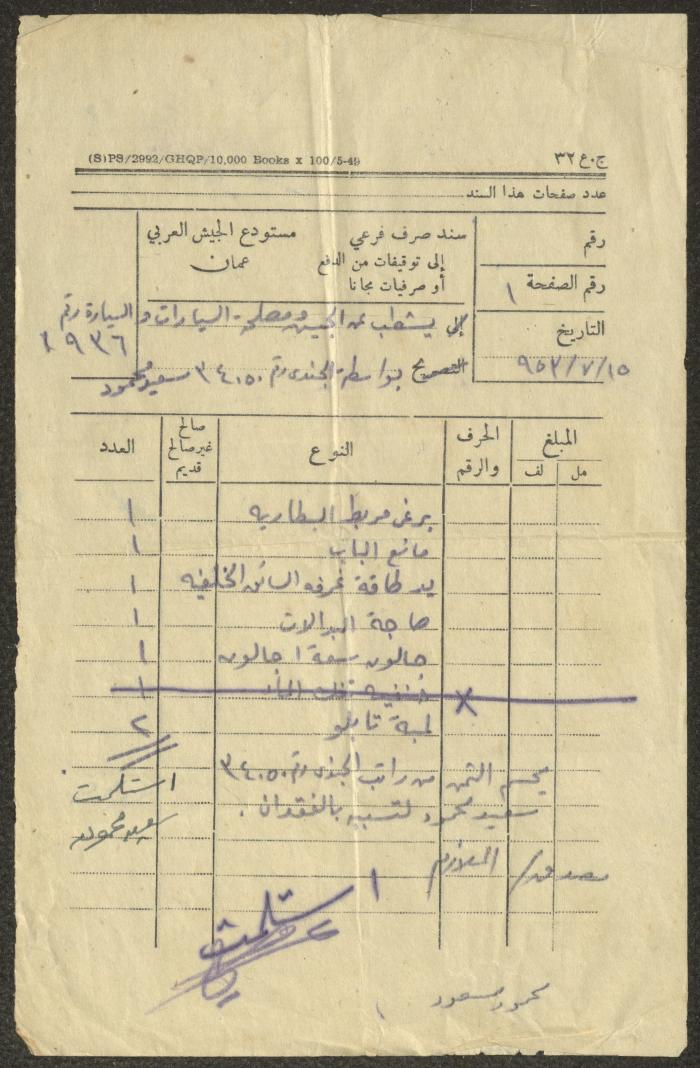 (S)PS/2992/GHQP/10,000 Books x 100/5-49
ج.ع ٣٢
عدد صفحات هذا السند
رقم
سند صرف فرعي
مستودع الجيش العربي
إلى توقيفات من الدفع
عمان
أو صرفيات مجانا
رقم الصفحة ١
التاريخ
٩٥٣/٧/١٥
إلى يشطب عن الجيش مصلحة السيارات و السيارة رقم
١٩٣٦
التصريح بواسطة الجندي رقم ٣٤٠٥٠ سعيد محمود
المبلغ
مل
لف
الحرف والرقم
النوع
صالح
غير صالح
قديم
العدد
برغي مربط البطاريه ١
مانع الباب ١
يد طاقة غرفه السائق الخلفيه ١
صاجة البدالات ١
جالون سعة ١ جالون ١
١
لمبة تابلو ٢
يحسم الثمن من راتب الجندي رقم ٣٤٠٥٠
سعيد محمود لتسببه بالفقدان .
استلمت
سعيد محمود
الملازم
استلمت
محمود مسعود